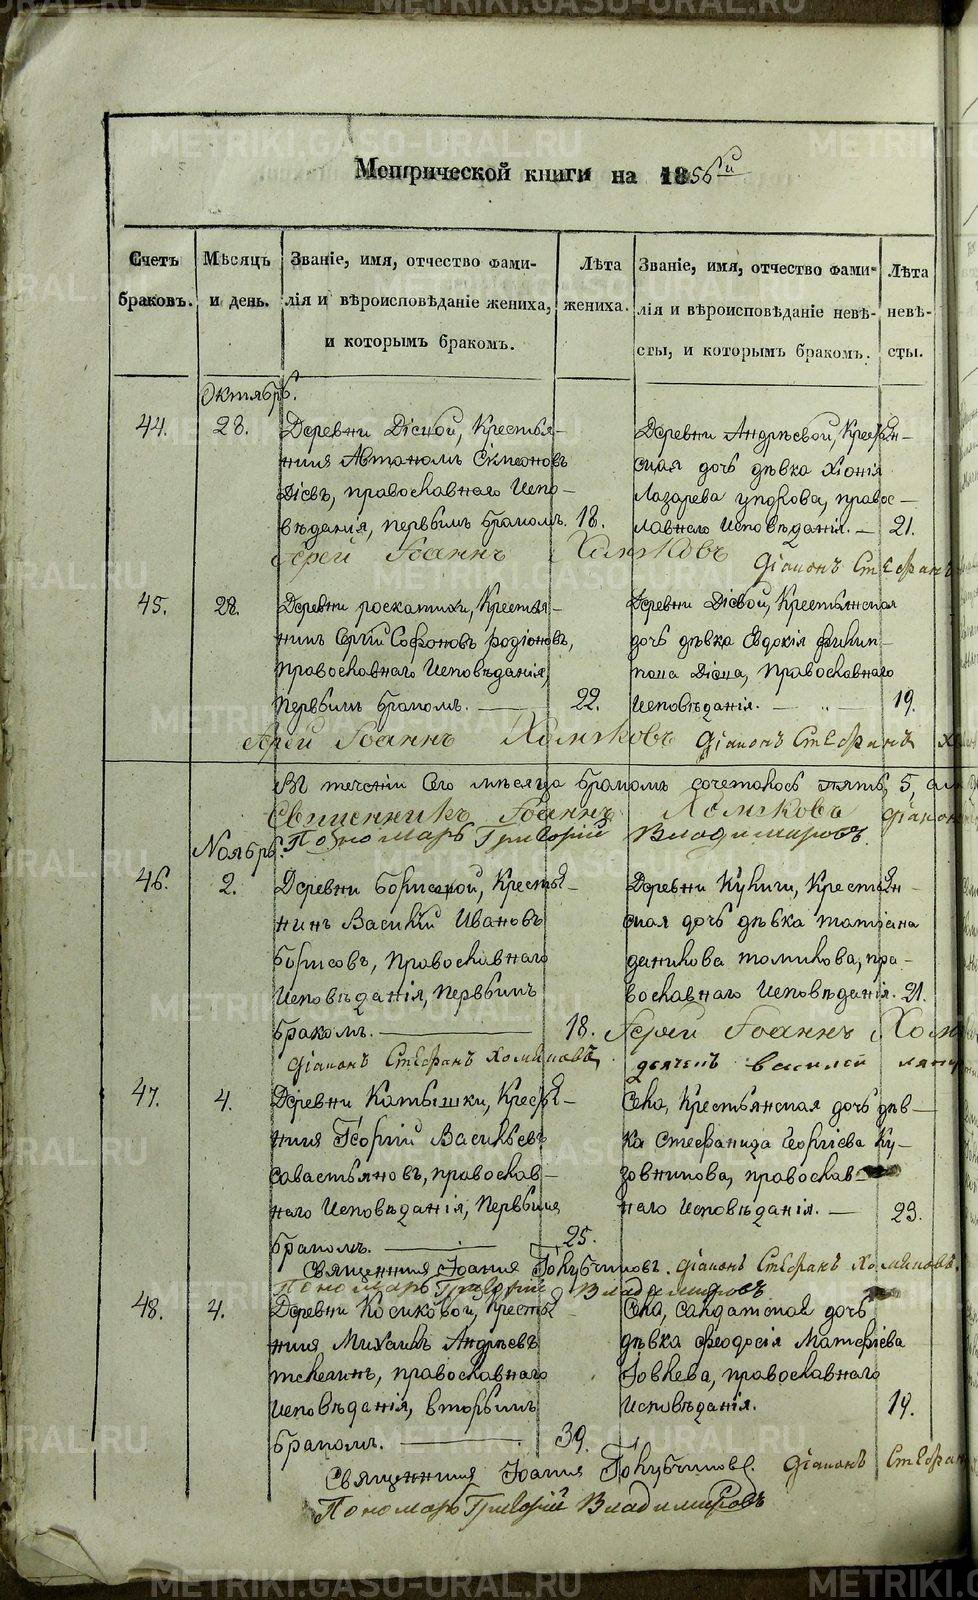 METRIKI.GASO-URAL.RU
Метрической книги на 1856й
Счетъ браковъ.
Мѣсяцъ и день.
Званіе, имя, отчество фами-
лія и вѣроисповѣданіе жениха,
и которымъ бракомъ.
Лѣта жениха.
Званіе, имя, отчество фами-
лія и вѣроисповѣданіе невѣ-
сты, и которымъ бракомъ.
Лѣта невѣ-
сты.
Октябрь.
44. 28. Деревни Дієвой, Крестья-
нинъ Автономъ Симеоновъ
Дієвъ, православнаго Испо-
вѣданія, первымъ бракомъ. 18.
Деревни Андрѣевой, Крестьян-
ская дочь дѣвка Хіонія
Лазарева, правос-
лавнаго Исповѣданія. — 21.
Іерей Іоаннъ Хомяковъ
Діаконъ Стефанъ
45. 28. Деревни Роскатихи, Крестья-
нинъ Сергій Софоновъ Родіоновъ,
Православнаго Исповѣданія,
Первымъ бракомъ. — 22.
Деревни Дієвой, Крестьянская
дочь дѣвка Евдокія Филип-
пова Дієва, Православнаго
Исповѣданія. — 19.
Іерей Іоаннъ Хомяковъ Діаконъ Стефанъ
Въ теченіи сего мѣсяца бракомъ сочеталось пять, 5,
Священникъ Іоаннъ Хомяковъ Діаконъ
Пономарь Григорій Владимировъ.
Ноябрь.
46. 2. Деревни Борисовой, Крестья-
нинъ Василій Ивановъ
Борисовъ, Православнаго
Исповѣданія, Первымъ
бракомъ. — 18.
Деревни Кулиги, Крестьян-
ская дочь дѣвка Татіана
Данилова Томилова, пра-
вославнаго Исповѣданія. 21.
Іерей Іоаннъ
Діаконъ Стефанъ Хомяковъ,
дьячекъ Василей
47. 4. Деревни Катышки, Крестья-
нинъ Георгій Васильевъ
Савастьяновъ, православ-
наго Исповѣданія, Первымъ
бракомъ. — 25.
Села, Крестьянская дочь дѣв-
ка Стефанида Георгіева Ку-
зовникова, православ-
наго Исповѣданія. — 23.
Священникъ Іоаннъ Голубчиковъ. Діаконъ Стефанъ Хомяковъ.
Пономарь Григорій Владимировъ
48. 4. Деревни Косиковой, Крестья-
нинъ Михаилъ Андрѣевъ
православнаго
Исповѣданія, вторымъ
бракомъ. — 39.
Села, солдатская дочь
дѣвка Феодосія Матфіева
Іовлева, православнаго
Исповѣданія. 19.
Священникъ Іоаннъ Голубчиковъ. Діаконъ Стефанъ
Пономарь Григорій Владимировъ